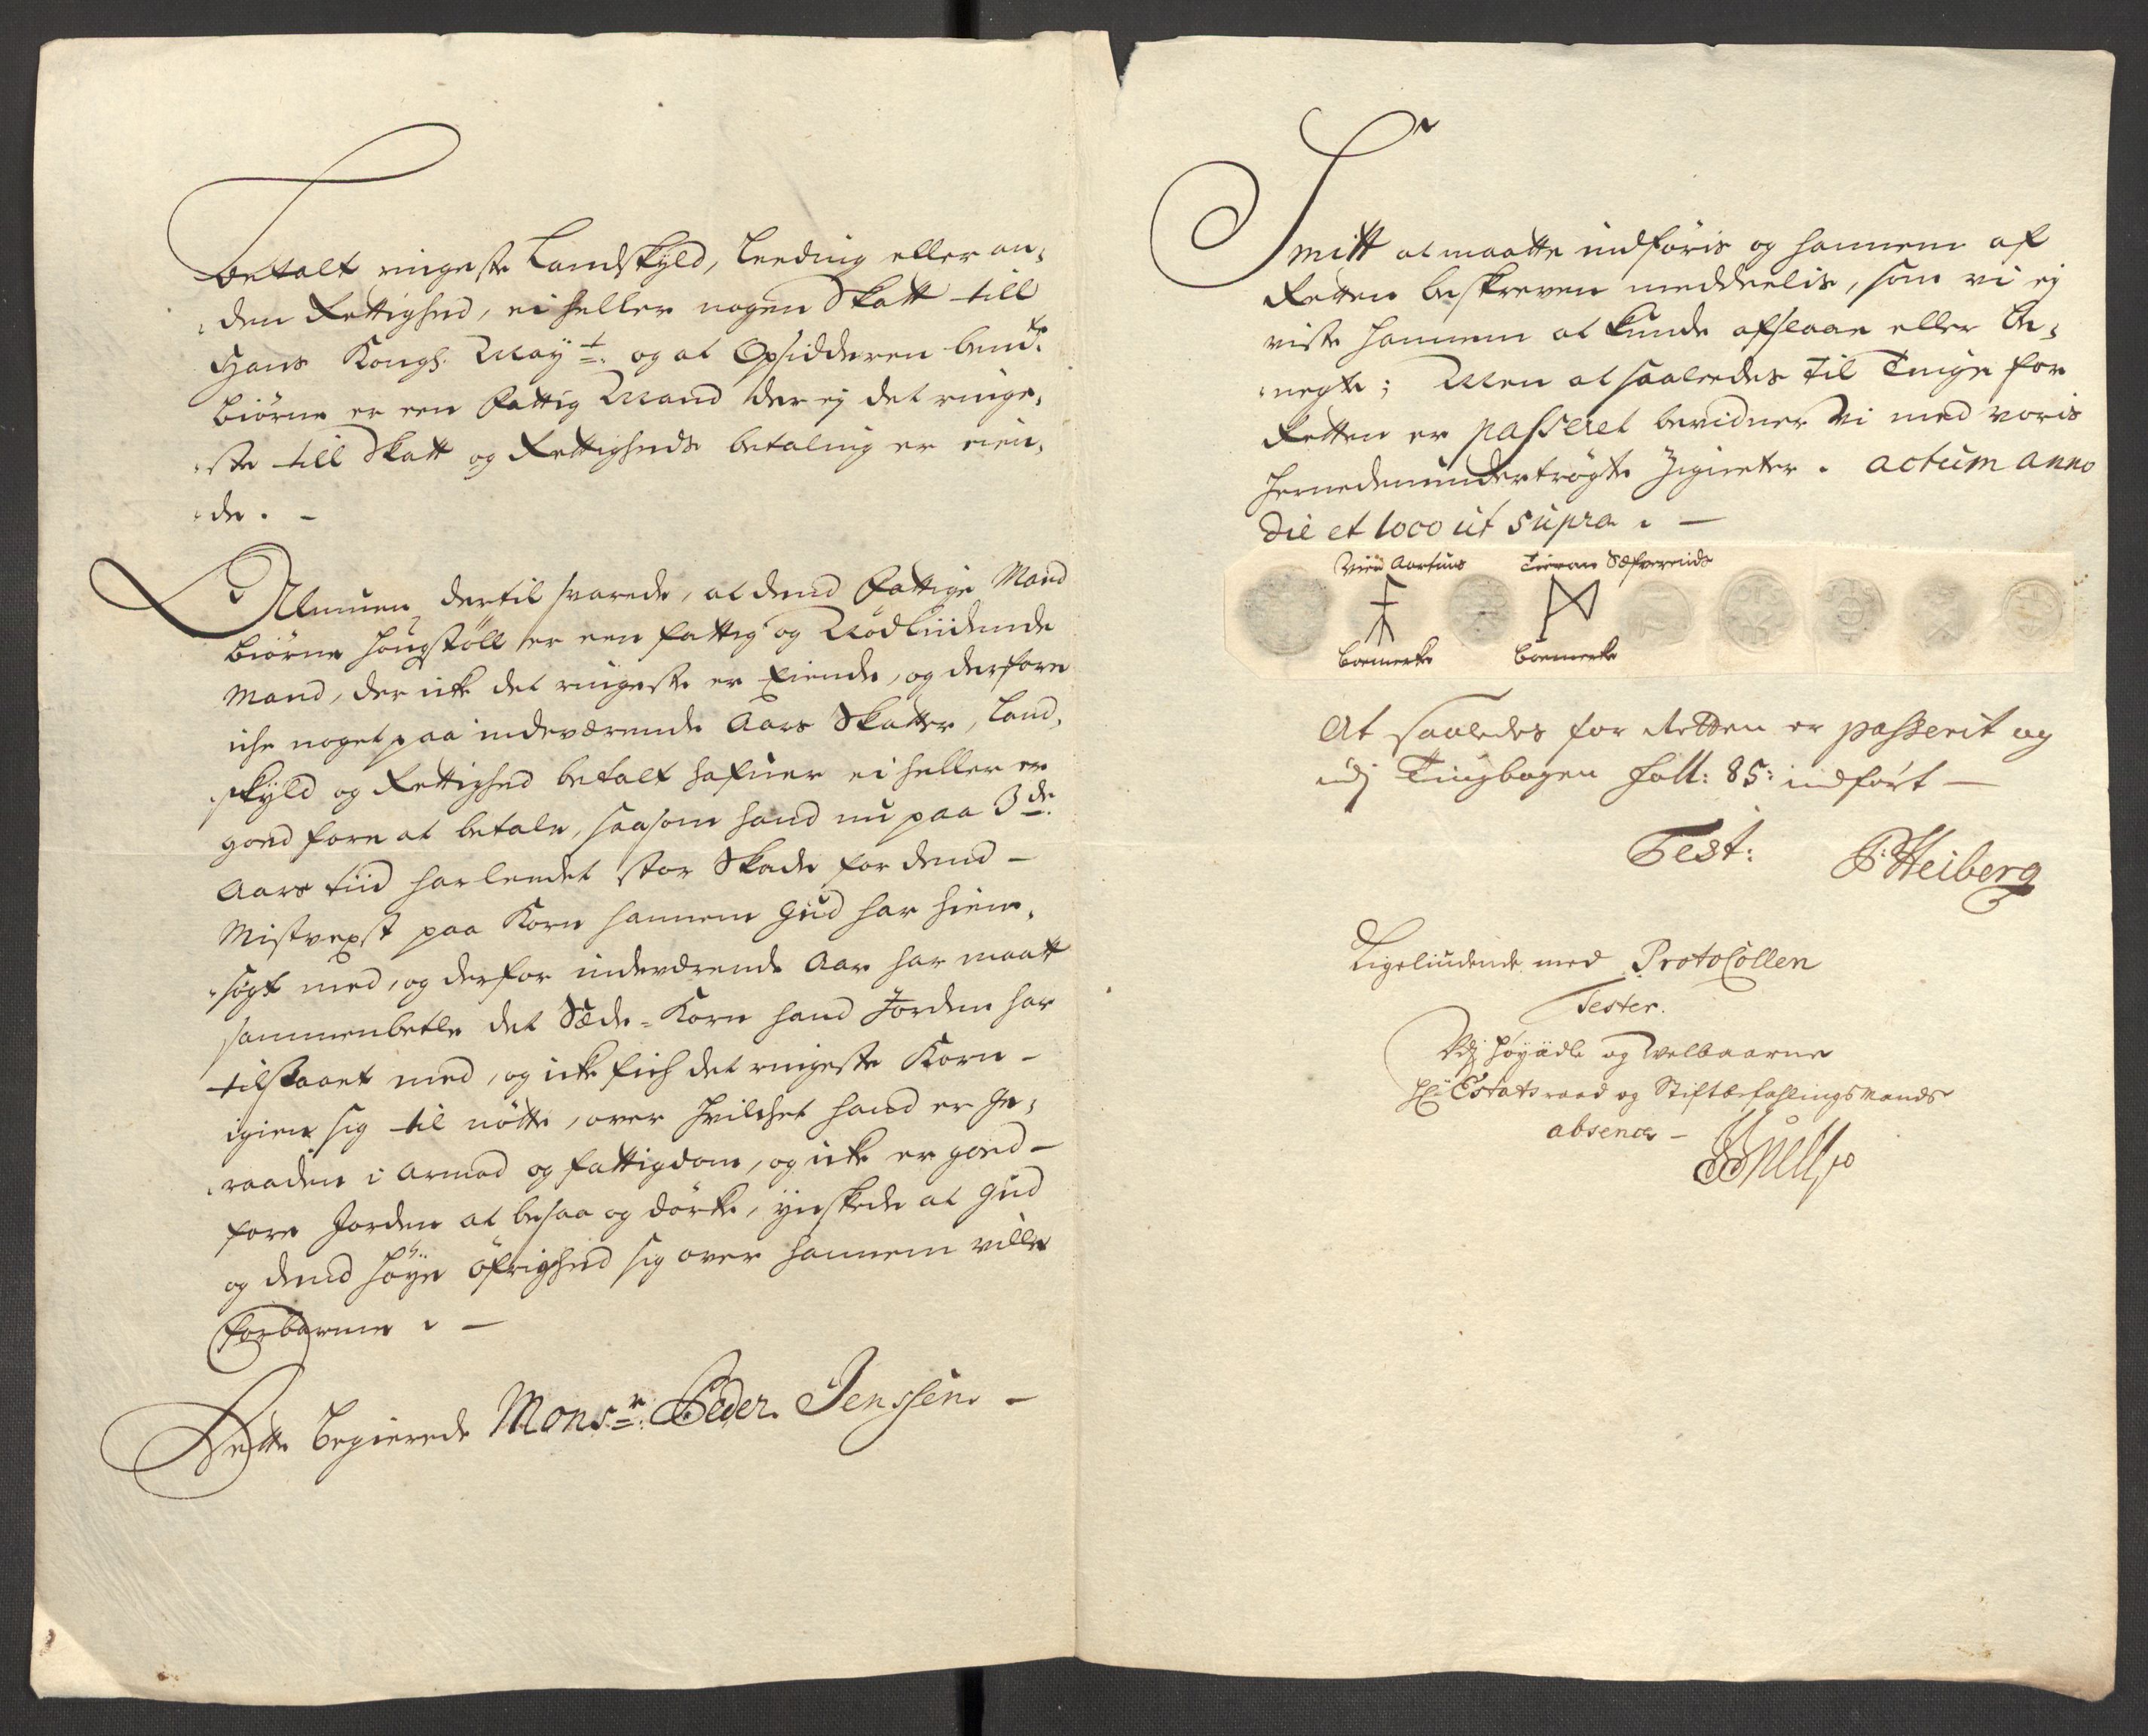 betalt ringeste Landskyld, Leeding eller an-
den Rettighed, ei heller nogen Skatt till
Hans Kongl. Mayt: og at Opsidderen bemte
Biörne er een Fattig Mand der ej det ringe-
ste till Skatt og Rettigheds betaling er eien-
de. -
Almuen dertil svarede, at dend Fattige Mand
Biörne Hougstöll er een fattig og Nödliidende
Mand, der icke det ringeste er Eiende, og derfore
iche noget paa indeværende Aars Skatter, Land-
skyld og Rettighed betalt hafuer ei heller er
goed fore at betale, saasom hand nu paa 3de
Aars tiid har leedet stor Skade for dend -
Misvext paa Korn hannem Gud har hiem-
søgt med, og derfor indeværende Aar har maatt
sammenbetle det Sæde-Korn hand Jorden har
tilsaaet med, og icke fich det ringeste Korn -
igien sig til nötte, over hvilchet hand er Ge-
raaden i armod og fattigdom, og icke er goed -
fore Jorden at besaa og dörke, ynskede at Gud
og dend Höye öfrighed sig over hannem ville
forbarme. -
Dette begierede Monsr: Peder Jenssen -
Smitt at maatte indføris og hannem af
Retten beskreven meddeelis, som vi ej
viste hannem at kunde afslaae eller be-
negte; Men at saaledes til Tinge for
Retten er passeret bevidner Vi med voris
hernedenundertrögte Zigneter. actum anno
die et loco ut supra. -
Boemerke Boemerke
At saaledes for Retten er passerit og
udj Tingbogen foll: 85: indført -
Test: P: Heiberg
Ligeliudende med Protocollen
Tester.
Udj Höyädle og Velbaarne
Hr Estatsraad og Stiftbefahlingsmands
absence -